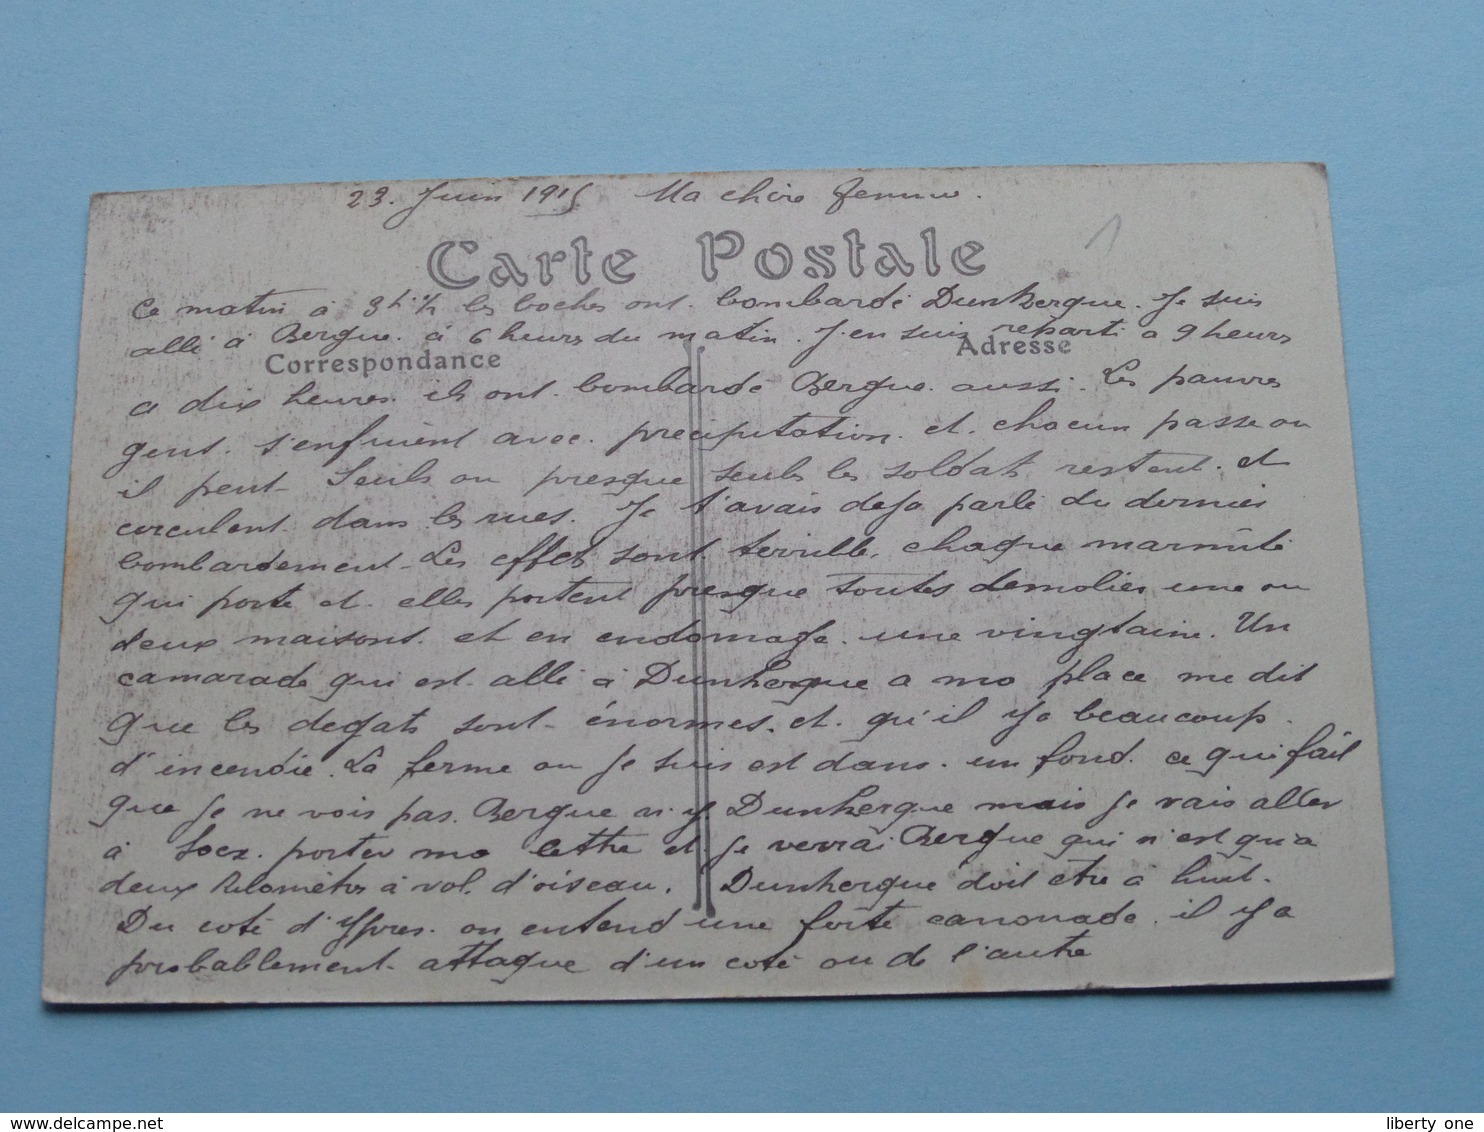 23. Juin 1915 Ma chère femme.
Carte Postale
1
Ce matin à 3h ½ les boches ont bombardé Dunkerque. Je suis
allé à Bergue. à 6 heures du matin. J'en suis reparti a 9 heures
Correspondance
Adresse
a dix heures ils ont bombardé Bergue aussi. Les pauvres
gent. s'enfuient avec. precipitation. et. chacun passe ou
il peut. Seuls ou presque seuls les soldats restent. et
circulent dans les rues. Je t'avais deja parlé du dernier
bombardement. Les effets sont terrible, chaque marmite
qui porte et elles portent presque toutes demolies une ou
deux maisont. et en endomage. une vingtaine. Un
camarade qui est allé à Dunkerque a ma place me dit
que les degats sont énormes. et. qu'il y a beaucoup.
d'incendie. La ferme ou je suis est dans. un fond. ce qui fait
que je ne vois pas. Bergue ni Dunkerque mais je vais aller
à Socx. porter ma lettre et je verrai Bergue qui n'est qu'a
deux kilomètres à vol. d'oiseau. Dunkerque doit etre à huit.
Du coté d'Ypres. on entend une forte canonade. il y a
probablement attaque d'un coté ou de l'autre
liberty one
delcampe.net